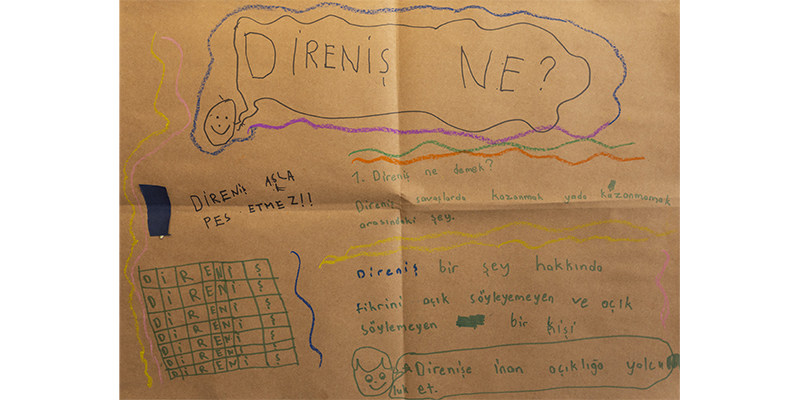 DİRENİŞ NE?
DİRENİŞ ASLA
PES ETMEZ!!
1. Direniş ne demek?
Direniz savaşlarda kazanmak yada kazanmamak
arasındaki şey.
Direniş bir şey hakkında
fikrini açık söyleyemeyen ve açık
söylemeyen bir kişi
DİRENİŞ
DİRENİŞ
DİRENİŞ
DİRENİŞ
DİRENİŞ
DİRENİŞ
DİRENİŞ
Direnişe inan açıklığa yolcu
luk et.